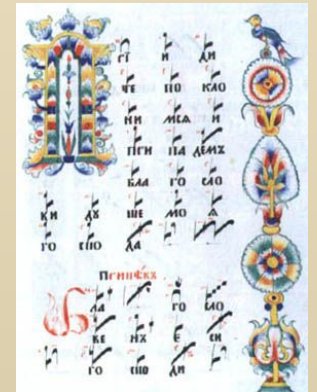 гі и ди
че по кло
ни мсѧ и
пги па демъ
бла го сло
ви дꙋ ше мо ѧ
го спо да
Пгипѣвъ
Бла го сло
ве нъ е си
го спо ди